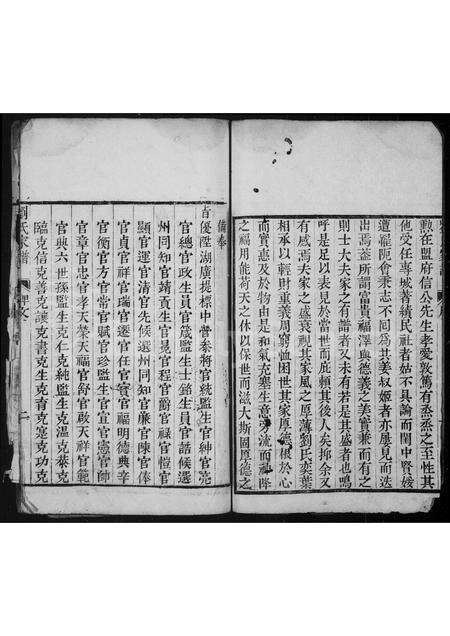 勲在盟府信公先生孝愛敦篤有烝烝之至性其
他受任專城著績民社者姑不具論而閨中賢媛
遭罹阨會秉志不回為其姜姒姬者亦屢見而迭
出焉蓋所謂富貴福澤與德義之美實兼而有之
則士大夫家之有譜者又未有若是其盛者也嗚
呼是足以表見於當世而庇頼其後人矣抑余又
有感焉夫家之盛衰視其家風之厚薄劉氏奕葉
相承以輕財重義周窮恤困世其家厚德根於心
而實惠及於物由是和氣充塞生意旁流而神降
之福用能荷天之休以保世而滋大斯固厚德之
備奉
首優陞湖廣提標中營叅將官統監生官紳官亮
官總官政生員官箴監生士銘生員官誥候選
州同知官靖貢生官易官程官爵官祿官愷官
顯官運官清官先候選州同知官廉官陳官俸
官貞官祥官瑞官選官任官賓官福明德典辛
官衡官方官常官賦官珍監生官宜官憲官師
官章官忠官孝天榮天福官勷官啟天祥官範
官典六世孫監生克仁克純監生克溫克恭克
臨克信克善克讓克書克生克育克寔克功克
劉氏家譜